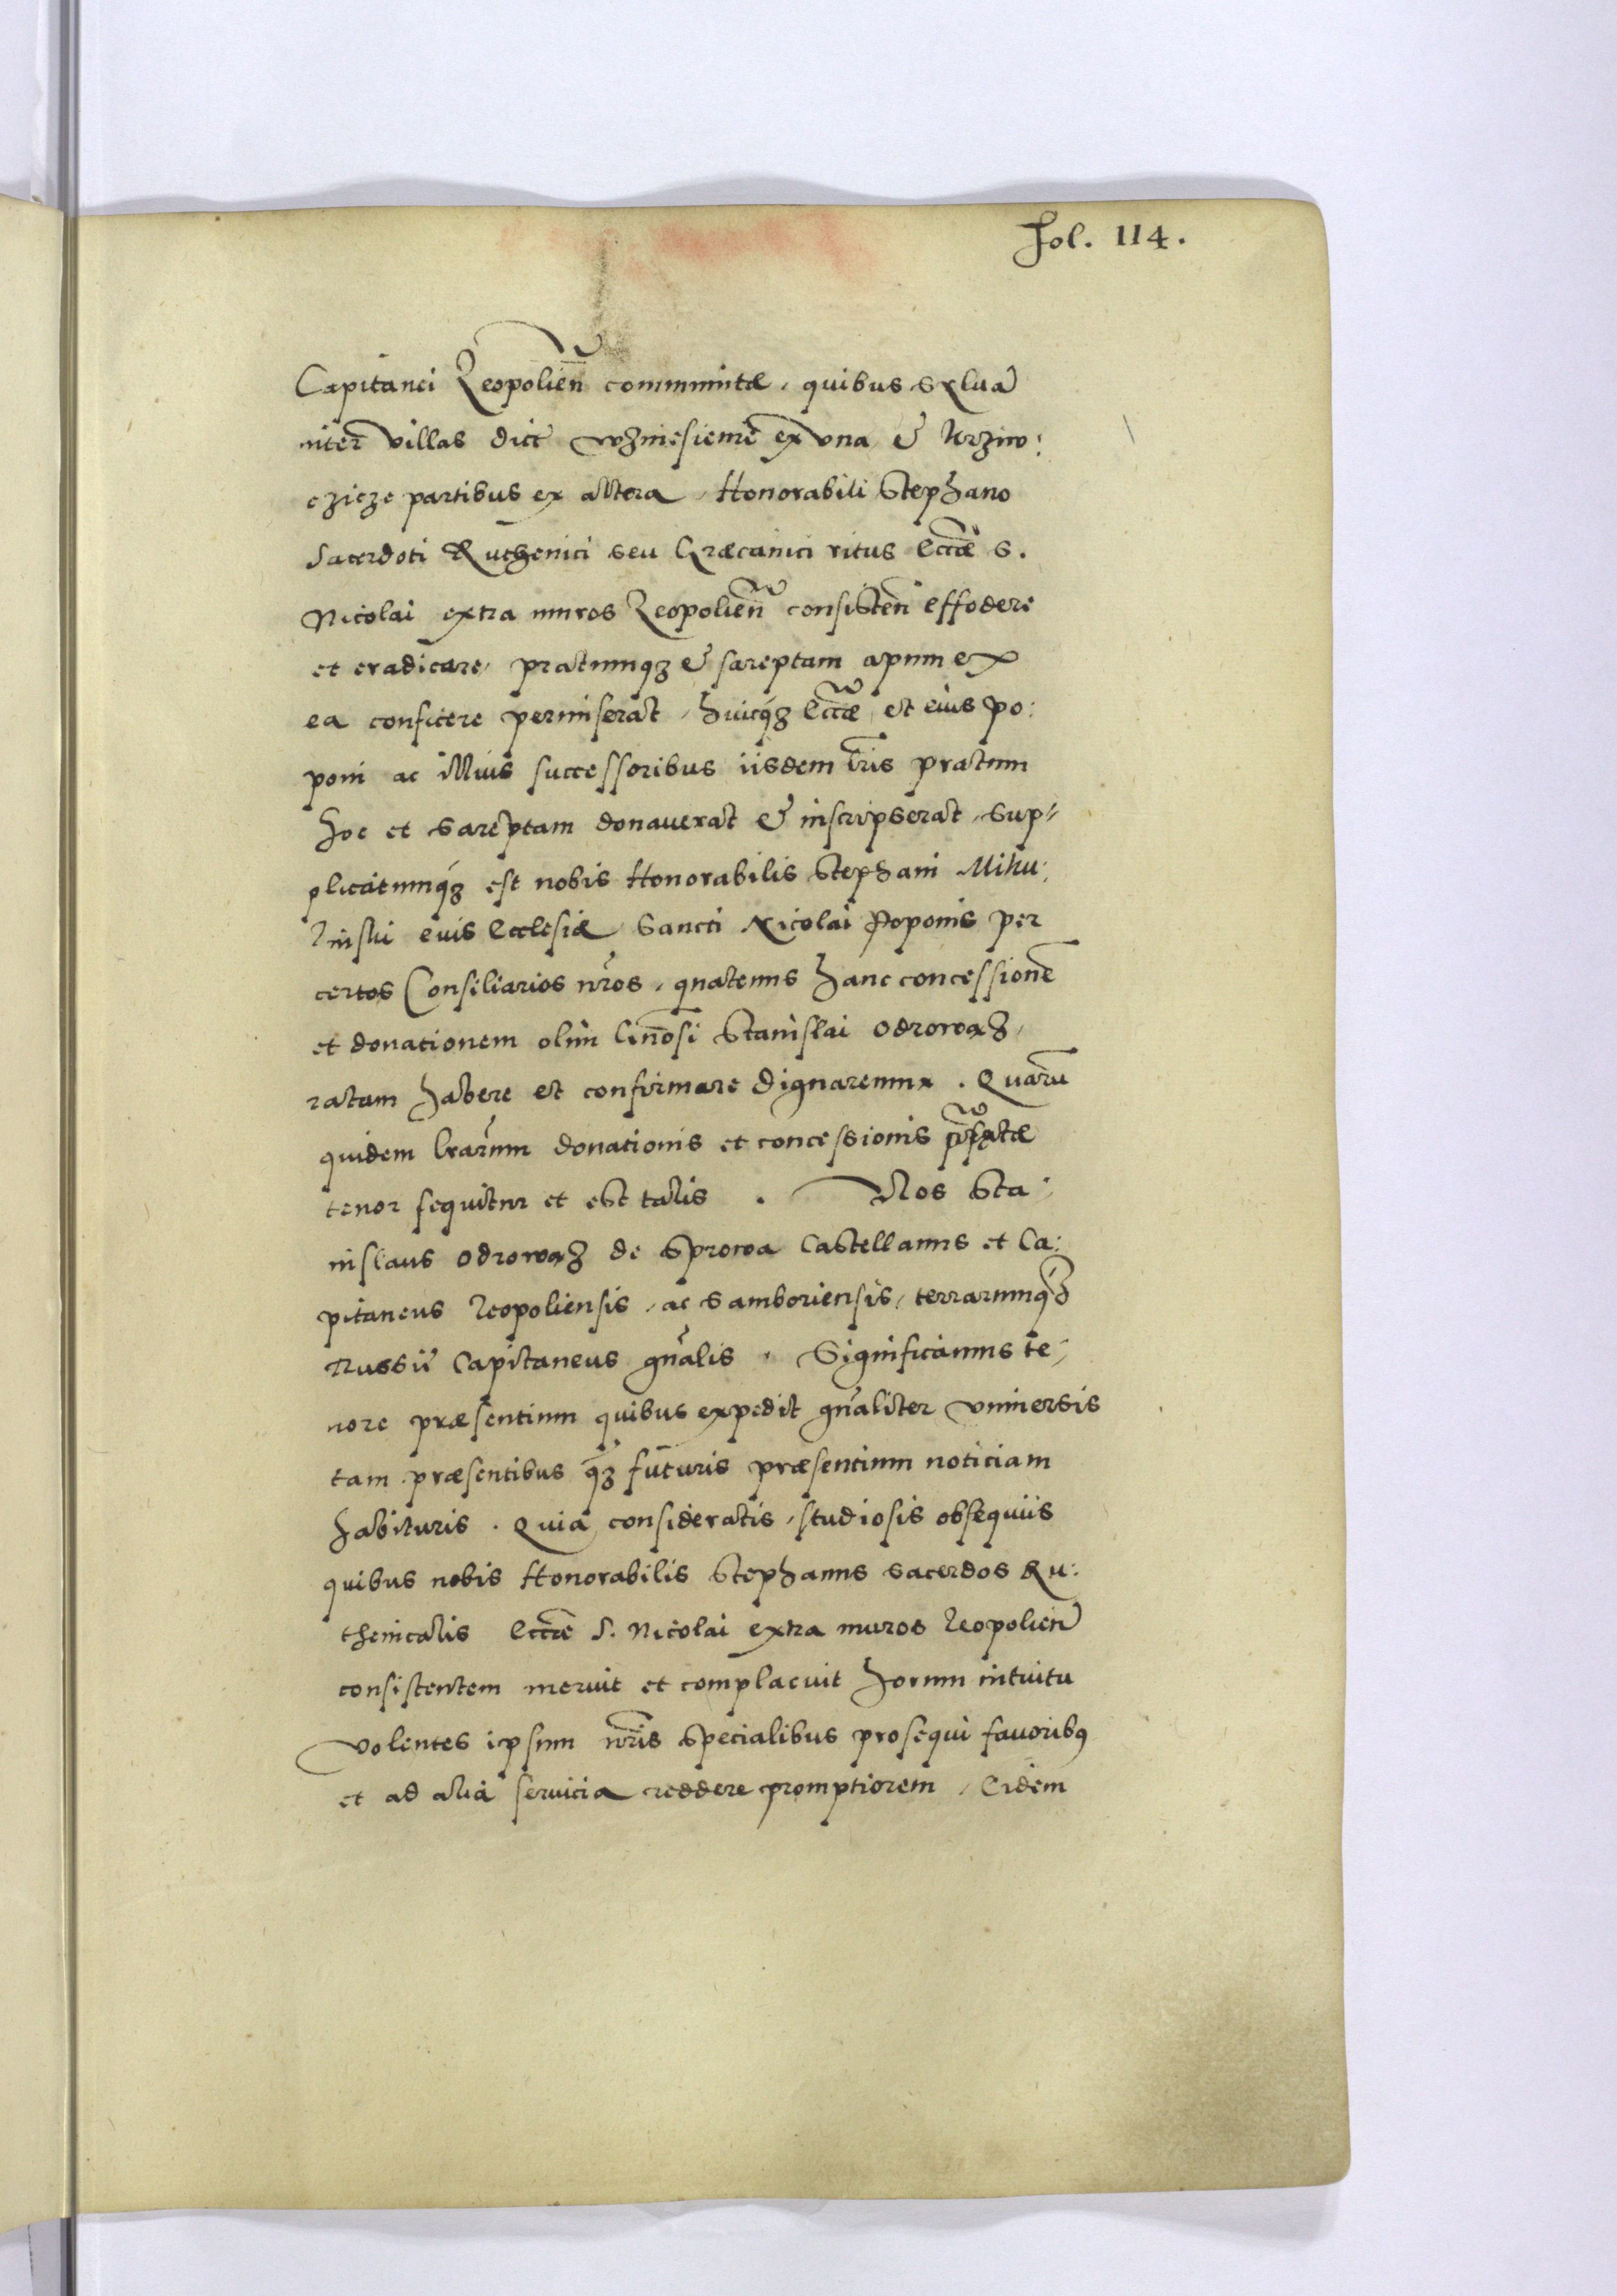 Fol. 114.
Capitanei Leopolien̄ communitæ, quibus syluā
inter villas dict Wzniesienie ex vna, et Krziw:
czieze partibus ex altera, Honorabili Stephano
Sacerdoti Ruthenici seu Græcanici ritus Eccæ S.
Nicolai extra muros Leopolien̄ consisten̄ effodere
et eradicare, pratumqꝫ et sareptam apum ex
ea conficere permiserat, huicqꝫ Eccæ et eius po:
poni ac illius successoribus iisdem l̄ris pratum
hoc et sareptam donauerat et inscripserat, sup-
plicatumqꝫ est nobis Honorabilis Stephani Miku:
linski euis Ecclesiæ Sancti Nicolai Poponis per
certos Consiliarios n̄ros, quatenus hanc concessionē
et donationem olim Gn̄osi Stanislai Odrowąz,
ratam habere et confirmare dignaremur. Quarū
quidem l̄rarum donationis et concessionis p̄fatæ
tenor sequitur et est talis. Nos Sta:
nislaus Odrowąz de Sprowa Castellanus et Ca:
pitaneus Leopoliensis, ac Samboriensis, terrarumqꝫ
Russiĩ Capitaneus gn̄alis. Significamus te:
nore præsentium quibus expedit gn̄aliter vniuersis
tam præsentibus qꝫ futuris præsentium noticiam
habituris. Quia consideratis, studiosis obsequiis
quibus nobis Honorabilis Stephanus sacerdos Ru:
thenicalis Eccæ S. Nicolai extra muros Leopolien̄
consistentem meruit et complacuit horum intuitu
volentes ipsum n̄ris specialibus prosequi fauoribꝰ
et ad alia seruicia reddere promptiorem, Eidem